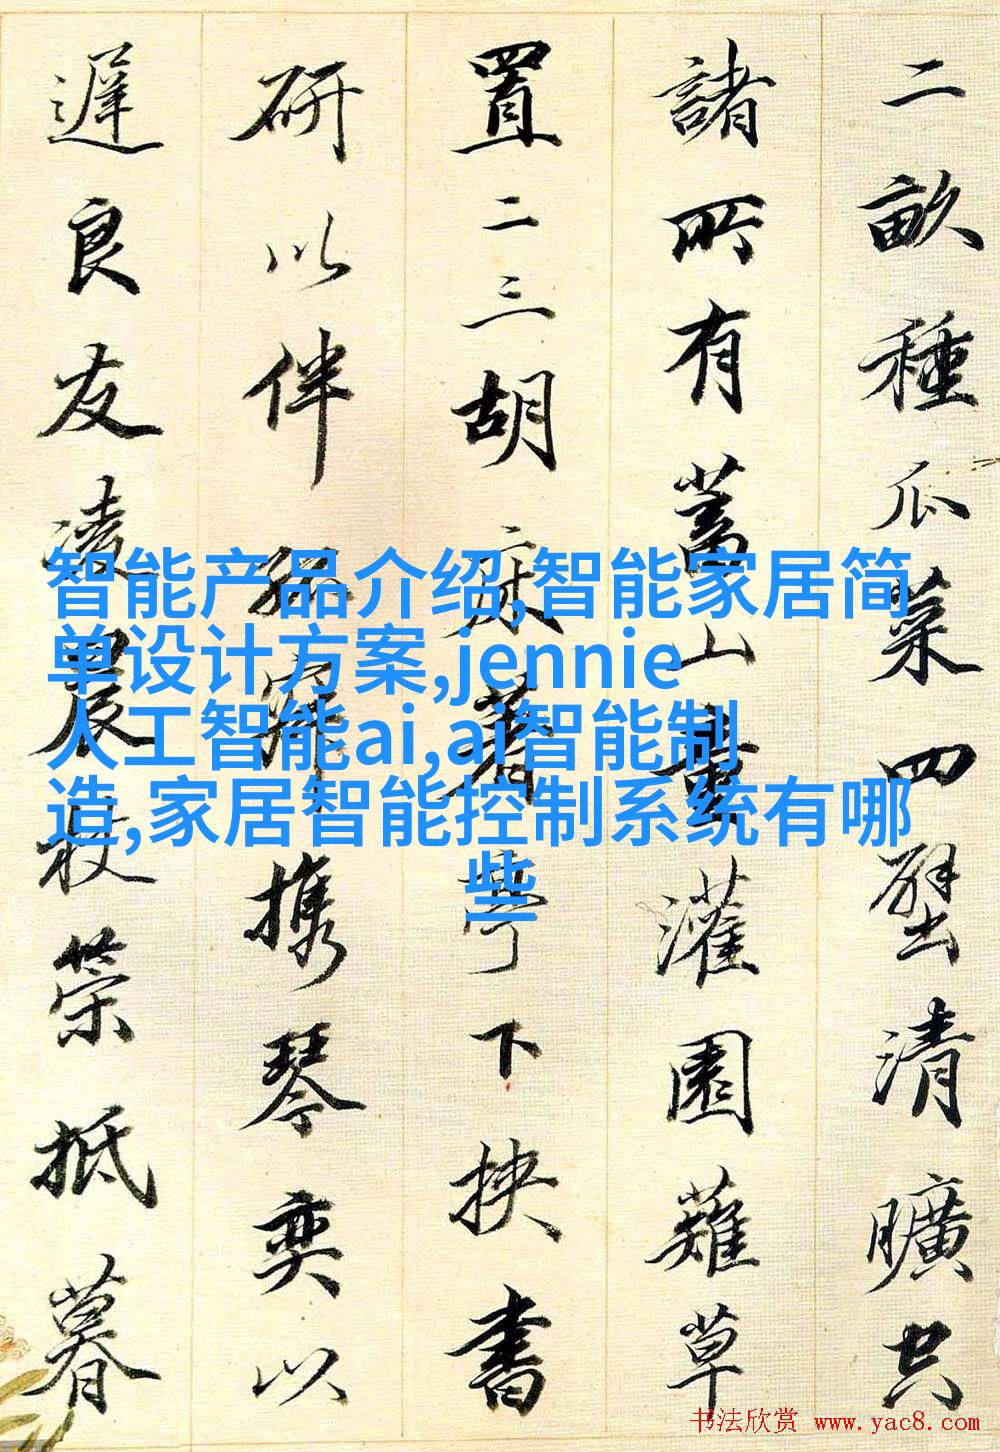 二畝種瓜菜四壁清曠共
諸所有蓄山灌園薙草
置二三胡床著亭下挾書
研以伴孤寂攜琴奕以
遲良友凌晨杖策抵暮
智能产品介绍,智能家居简
单设计方案,jennie
人工智能ai,ai智能制
造,家居智能控制系统有哪
些
书法欣赏 www.yac8.com